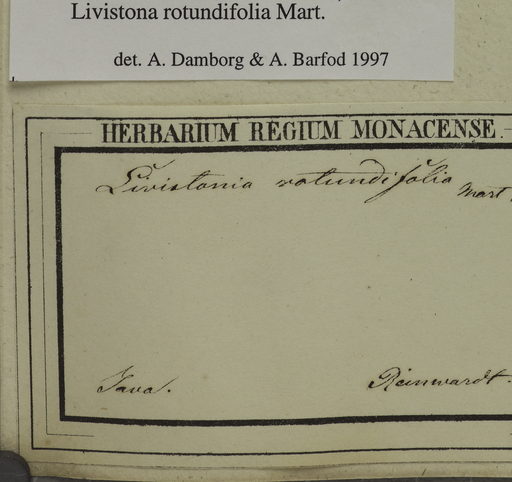 Livistona rotundifolia Mart.
det. A. Damborg & A. Barfod 1997
HERBARIUM REGIUM MONACENSE.
Livistonia rotundifolia Mart.
Java. Reinwardt.